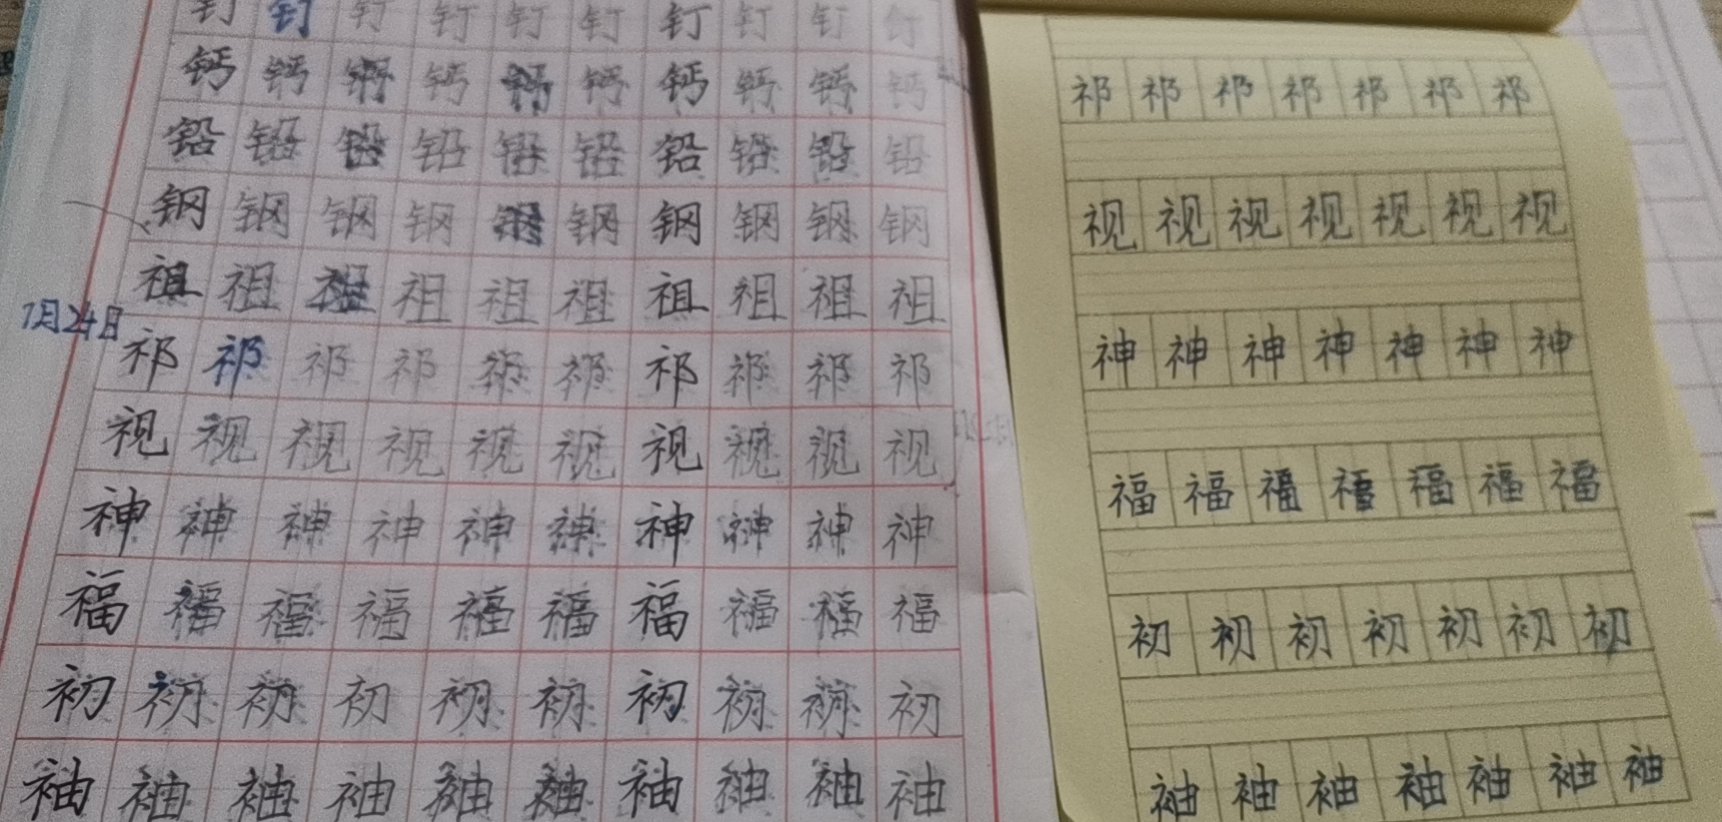 钉 钉 钉 钉 钉 钉 钉 钉 钉 钉
钙 钙 钙 钙 钙 钙 钙 钙 钙 钙
铅 铅 铅 铅 铅 铅 铅 铅 铅 铅
钢 钢 钢 钢 钢 钢 钢 钢 钢 钢
祖 祖 祖 祖 祖 祖 祖 祖 祖 祖
7月24日
祁 祁 祁 祁 祁 祁 祁 祁 祁 祁
视 视 视 视 视 视 视 视 视 视
神 神 神 神 神 神 神 神 神 神
福 福 福 福 福 福 福 福 福 福
初 初 初 初 初 初 初 初 初 初
袖 袖 袖 袖 袖 袖 袖 袖 袖 袖
祁 祁 祁 祁 祁 祁 祁
视 视 视 视 视 视 视
神 神 神 神 神 神 神
福 福 福 福 福 福 福
初 初 初 初 初 初 初
袖 袖 袖 袖 袖 袖 袖